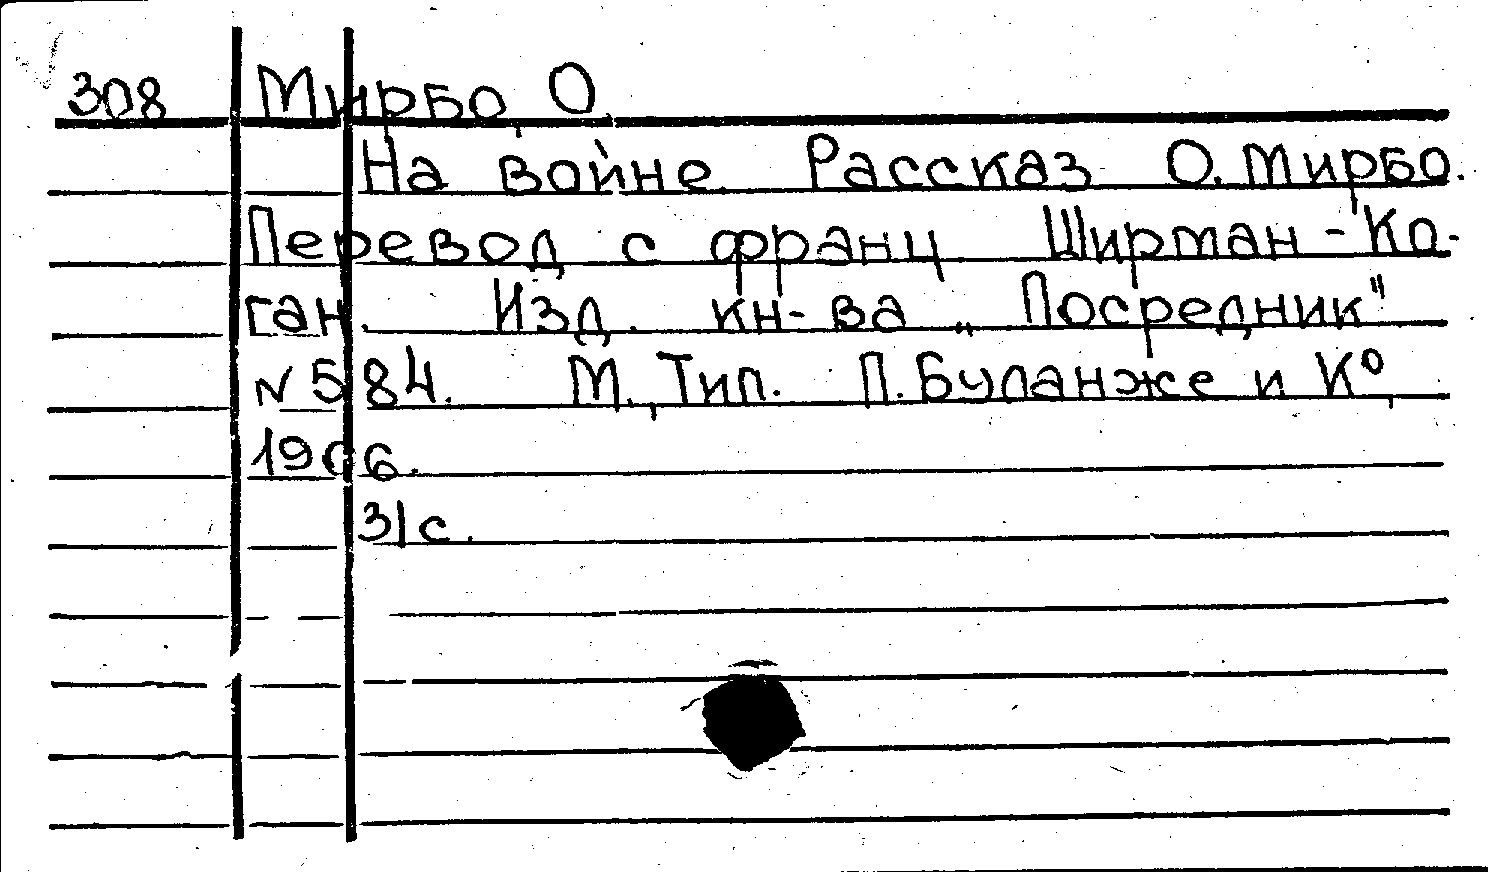 308 Мирбо, О.
На войне. Рассказ О. Мирбо.
Перевод с франц. Ширман-Ко-
ган. Изд. кн-ва „Посредник"
N 584. М., Тип. П. Буланже и К°,
1906.
31 с.